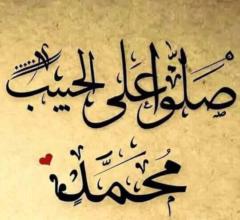 صَلُّوا عَلَى الحَبِيبِ
مُحَمَّدٍ